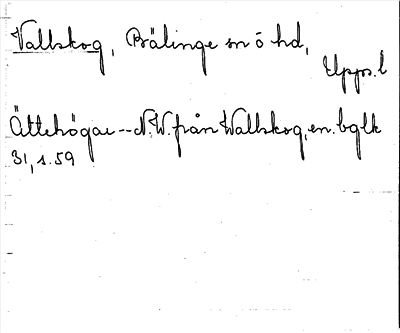 Vallskog, Bälinge sn o hd,
Upps. l
Ättehögar -- N.W. från Wallskog, en. bglk
31, s. 59